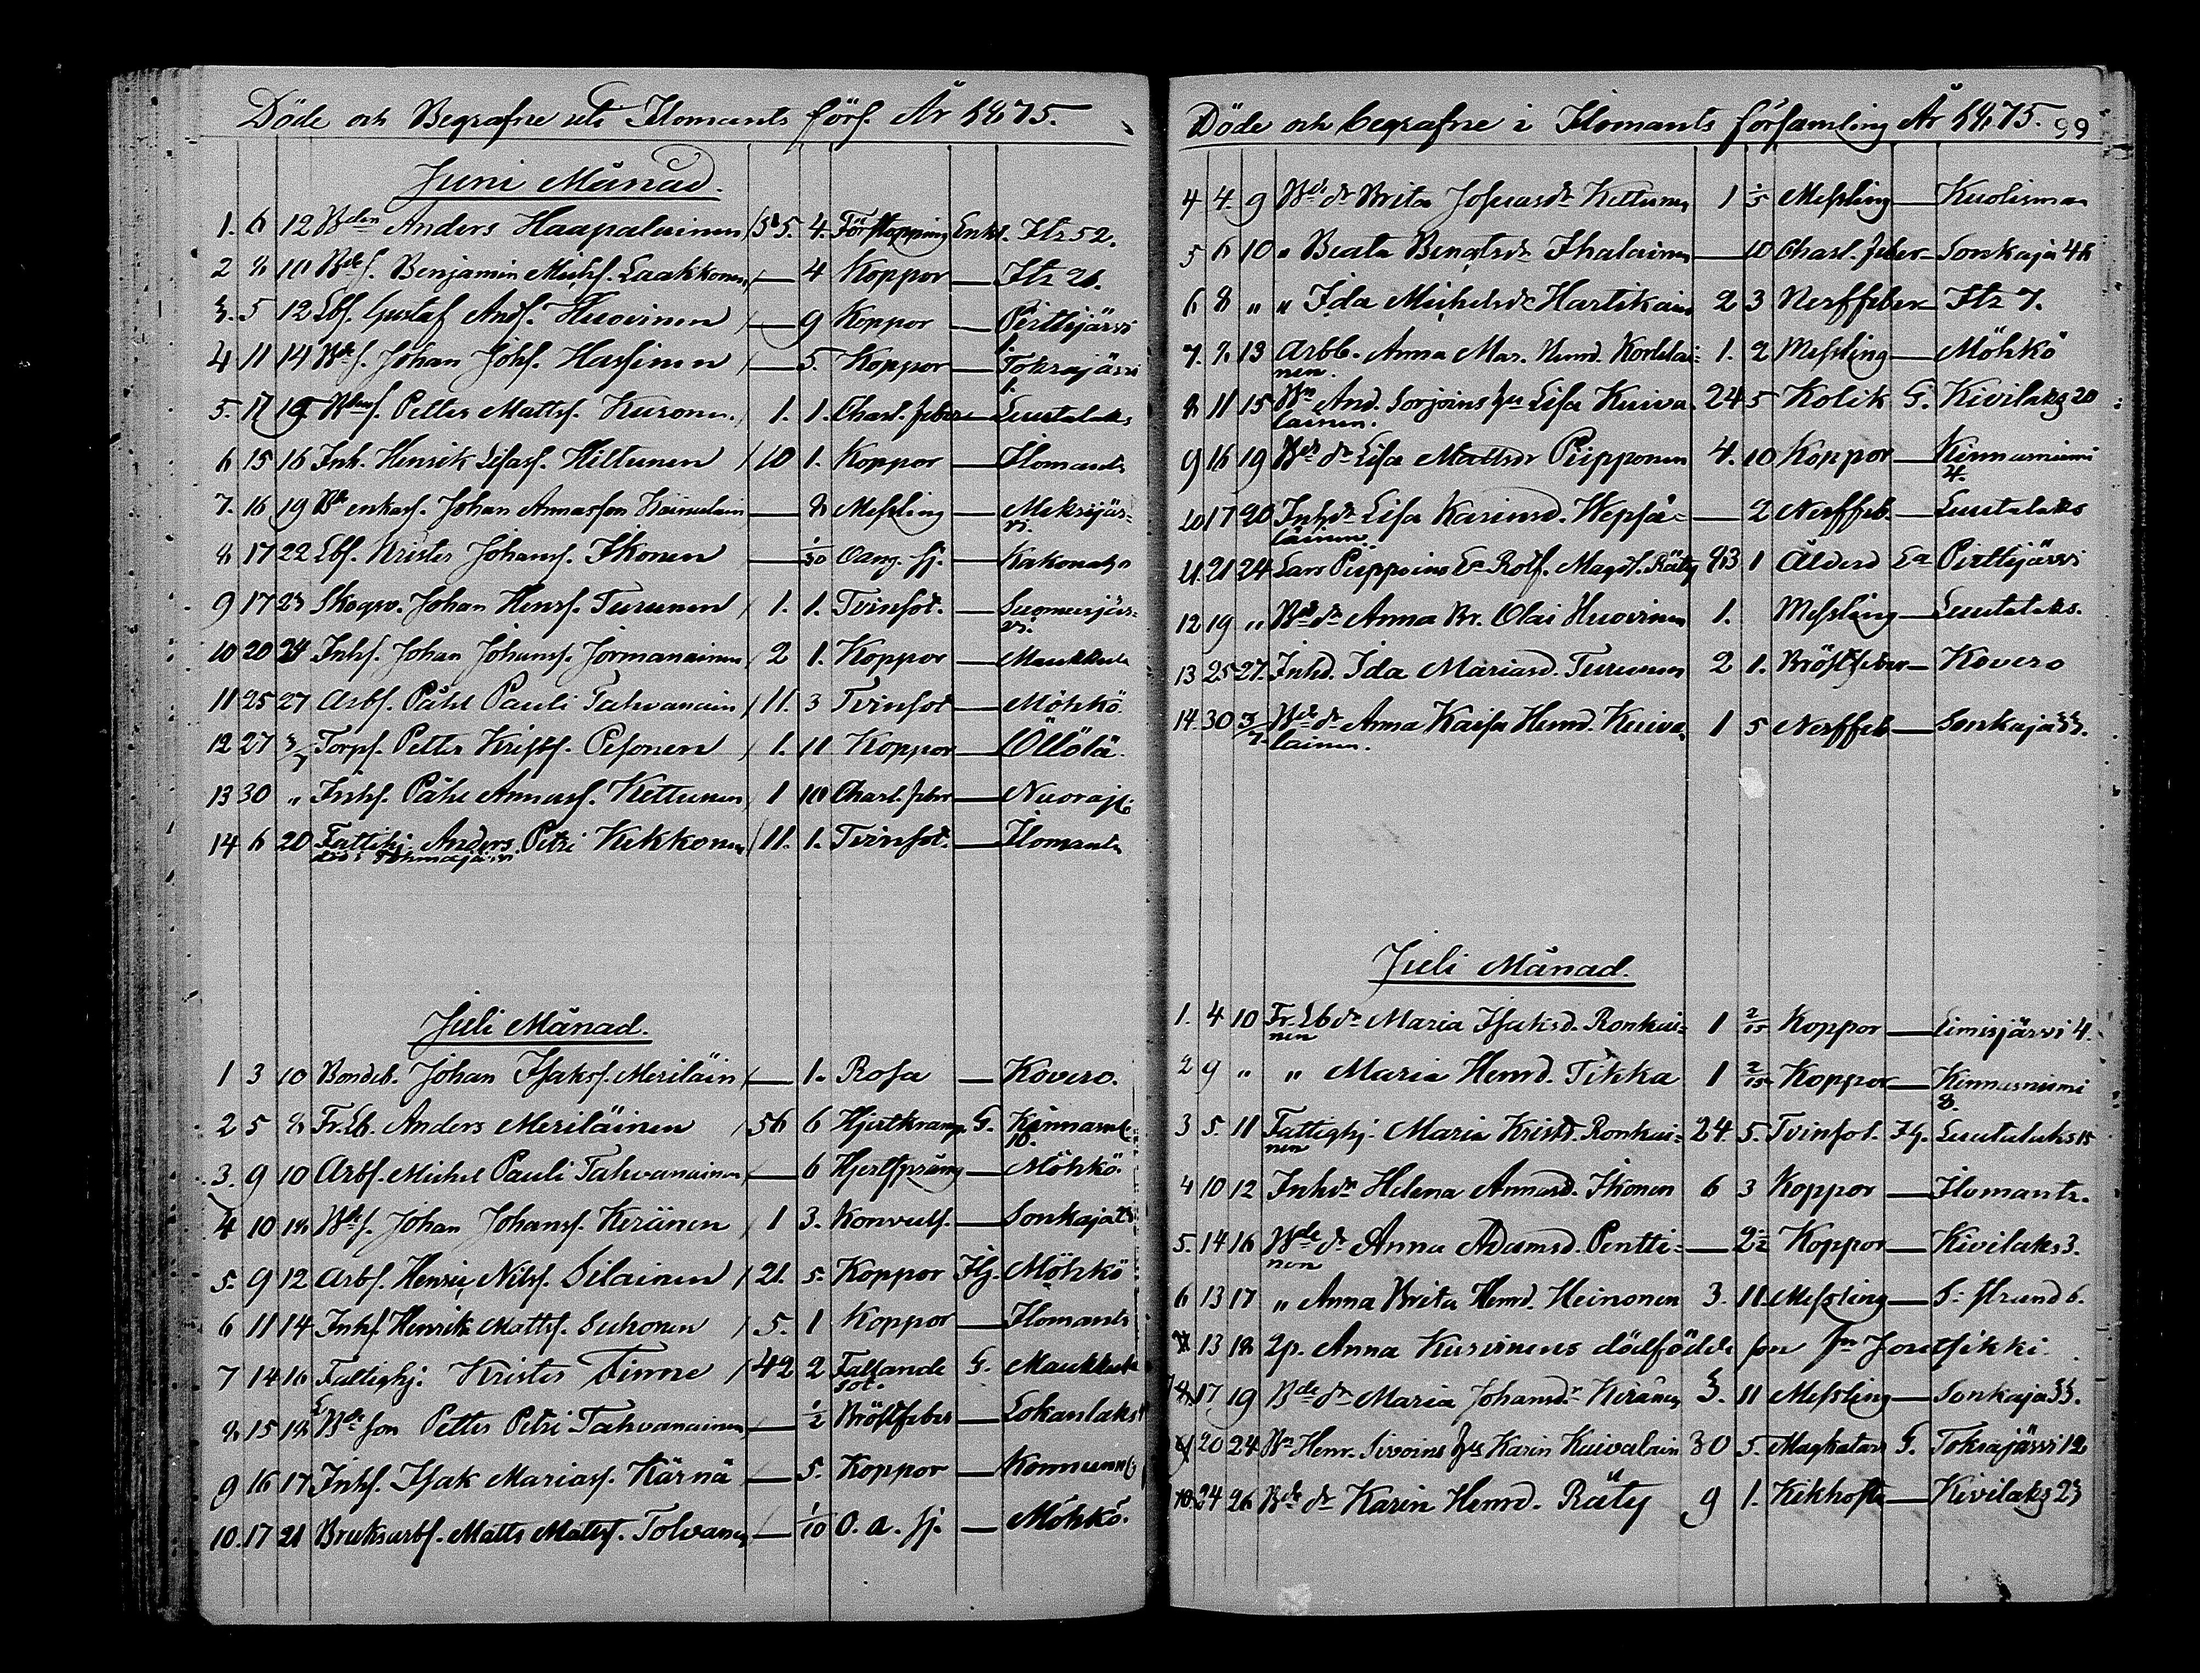 Döde och Begrafne uti Ilomants förs. År 1875.
Juni Månad.
1. 6 12 Bden Anders Haapalainen 55. 4. Förstoppning Enkl. Itz 52.
2 8 10 Bde s. Benjamin Michs. Laakkonen — 4 Koppor — Itz 26.
3. 5 12 Lbs. Gustaf Ands. Huovinen — 9 Koppor — Pirttijärvi
4 11 14 Bde s. Johan Johs. Hassinen — 5. Koppor — Tokrajärvi
5. 17 19 Petter Matts. Kuronen. 1. 1. Charl. feber — Luutalaks
6 15 16 Inh. Henrik Lisas. Hiltunen 10 1. Koppor — Ilomants
7. 16 19 Bde enkas. Johan Annasson — 8 Messling — Mekrijär=
vi.
8 17 22 Lbs. Krister Johans. Ikonen — 1/30 Oang. sj. — Kakonaho
9 17 23 Skogsv. Johan Henrs. Turunen 1. 1. Tvinsot. — Luomusjär=
vi.
10 20 24 Inhs. Johan Johans. Jormanainen 2 1. Koppor — Maukkula
11 25 27 Arbs. Påhl Pauli Tahvanain 11. 3 Tvinsot — Möhkö
12 27 3/7 Torps. Petter Krists. Pesonen 1. 11 Koppor — Öllölä.
13 30 " Inhs. Påhl Annass. Kettunen 1 10 Charl. feber — Nuoraj
14 6 20 Fattihj. Anders Petri Kekkonen 11. 1. Tvinsot. — Ilomants
död i Tohmajärvi
Juli Månad.
1 3 10 Bondeb. Johan Isaks. Meriläin — 1. Rosa — Kovero.
2 5 8 Fr. Lb. Anders Meriläinen 56 6 Hjertkramp. G. Kinnasn.
10.
3. 9 10 Arbs. Michel Pauli Tahvanainen — 6 Hjertsprång — Möhkö.
4 10 18 Bde s. Johan Johans. Keränen 1 3. Konvuls. — Sonkaja 23
5. 9 12 Arbs. Henric Nils. Silainen 21. 5. Koppor Hj. Möhkö
6 11 14 Inhs. Henrik Matts. Suhonen 5. 1 Koppor — Ilomants
7 14 16 Fattighj. Krister Timne 42 2 Fallande G. Maukkula
sot.
8 15 18 Bde son Petter Petri Tahvanainen — 1/2 Bröstfeber — Lokanlaks
9 16 17 Inhs. Isak Marias. Kärnä — 5. Koppor — Konnunn
10. 17 21 Bruksarbs. Matts Matts. Tolvanen — 1/10 O. a. sj. — Möhkö.
Döde och begrafne i Ilomants församling År 1875. 99
4 4 9 Bde dr Brita Josuasdr Kettunen 1 Messling — Kuolisman
5 6 10 " Beata Bengtsdr Ihalainen — 10 Charl. feber — Sonkaja 46
6 8 " " Ida Michelsdr Hartikain 2 3 Nerffeber — Itz 7.
7. 8 13 Arbb. Anna Mar. Hemd. Kortelai=
nen. 1. 2 Messling — Möhkö
8 11 15 Bn And. Sorjoins hu Lisa Kuiva
lainen. 24 5 Kolik G. Kivilaks 20
9 16 19 Bde dr Lisa Mattsdr Piipponen 4. 10 Koppor — Kinnasniemi
4.
10 17 20 Inhdr Lisa Karinsd. Hepsä=
läinen. — 2 Nerffeb. — Luutalaks
11. 21 24 Lars Piippoins Ea Rolf. Magdl. Räty 83 1 Ålderd Ea Pirttijärvi
12 19 " Bde dr Anna Br. Olai Huovinen 1. Messling — Luutalaks.
13 25 27. Inhd. Ida Mariasd. Turunen 2 1. Bröstfeber — Kovero
14. 30 3/7 Bde dr Anna Kaisa Hemd. Kuiva
lainen. 1 5 Nerffeb — Sonkaja 33.
Juli Månad.
1. 4 10 Fr. Lb dr Maria Isaksd. Ronkai=
nen 1 2/15 Koppor — Limisjärvi 4.
2 9 " " Maria Hemd. Tikka 1 2/15 Koppor — Kinnasniemi
8.
3 5. 11 Fattighj. Maria Kristd. Ronkai=
nen 24. 5. Tvinsot. Hj. Luutalaks 15
4 10 12 Inhdr Helena Annasd. Ikonen 6 3 Koppor — Ilomants.
5. 14 16 Bde dr Anna Adamsd. Pentti=
nen — 2 1/2 Koppor — Kivilaks 3.
6 13 17 " Anna Brita Hemd. Heinonen 3. 11. Messling — S. strand 6.
7 13 18 2p. Anna Kusinens dödfödde son fr Jouttikki.
8 17 19 Bde dr Maria Johansdr. Keränen 3. 11 Messling — Sonkaja 33.
9 20 24 Bn Henr. Sirvoins hu Karin Kuivalain 30 5. Magkatarr G. Tokrajärvi 12
10 24 26 Bde dr Karin Hemd. Räty 9 1. Kikhosta — Kivilaks 23